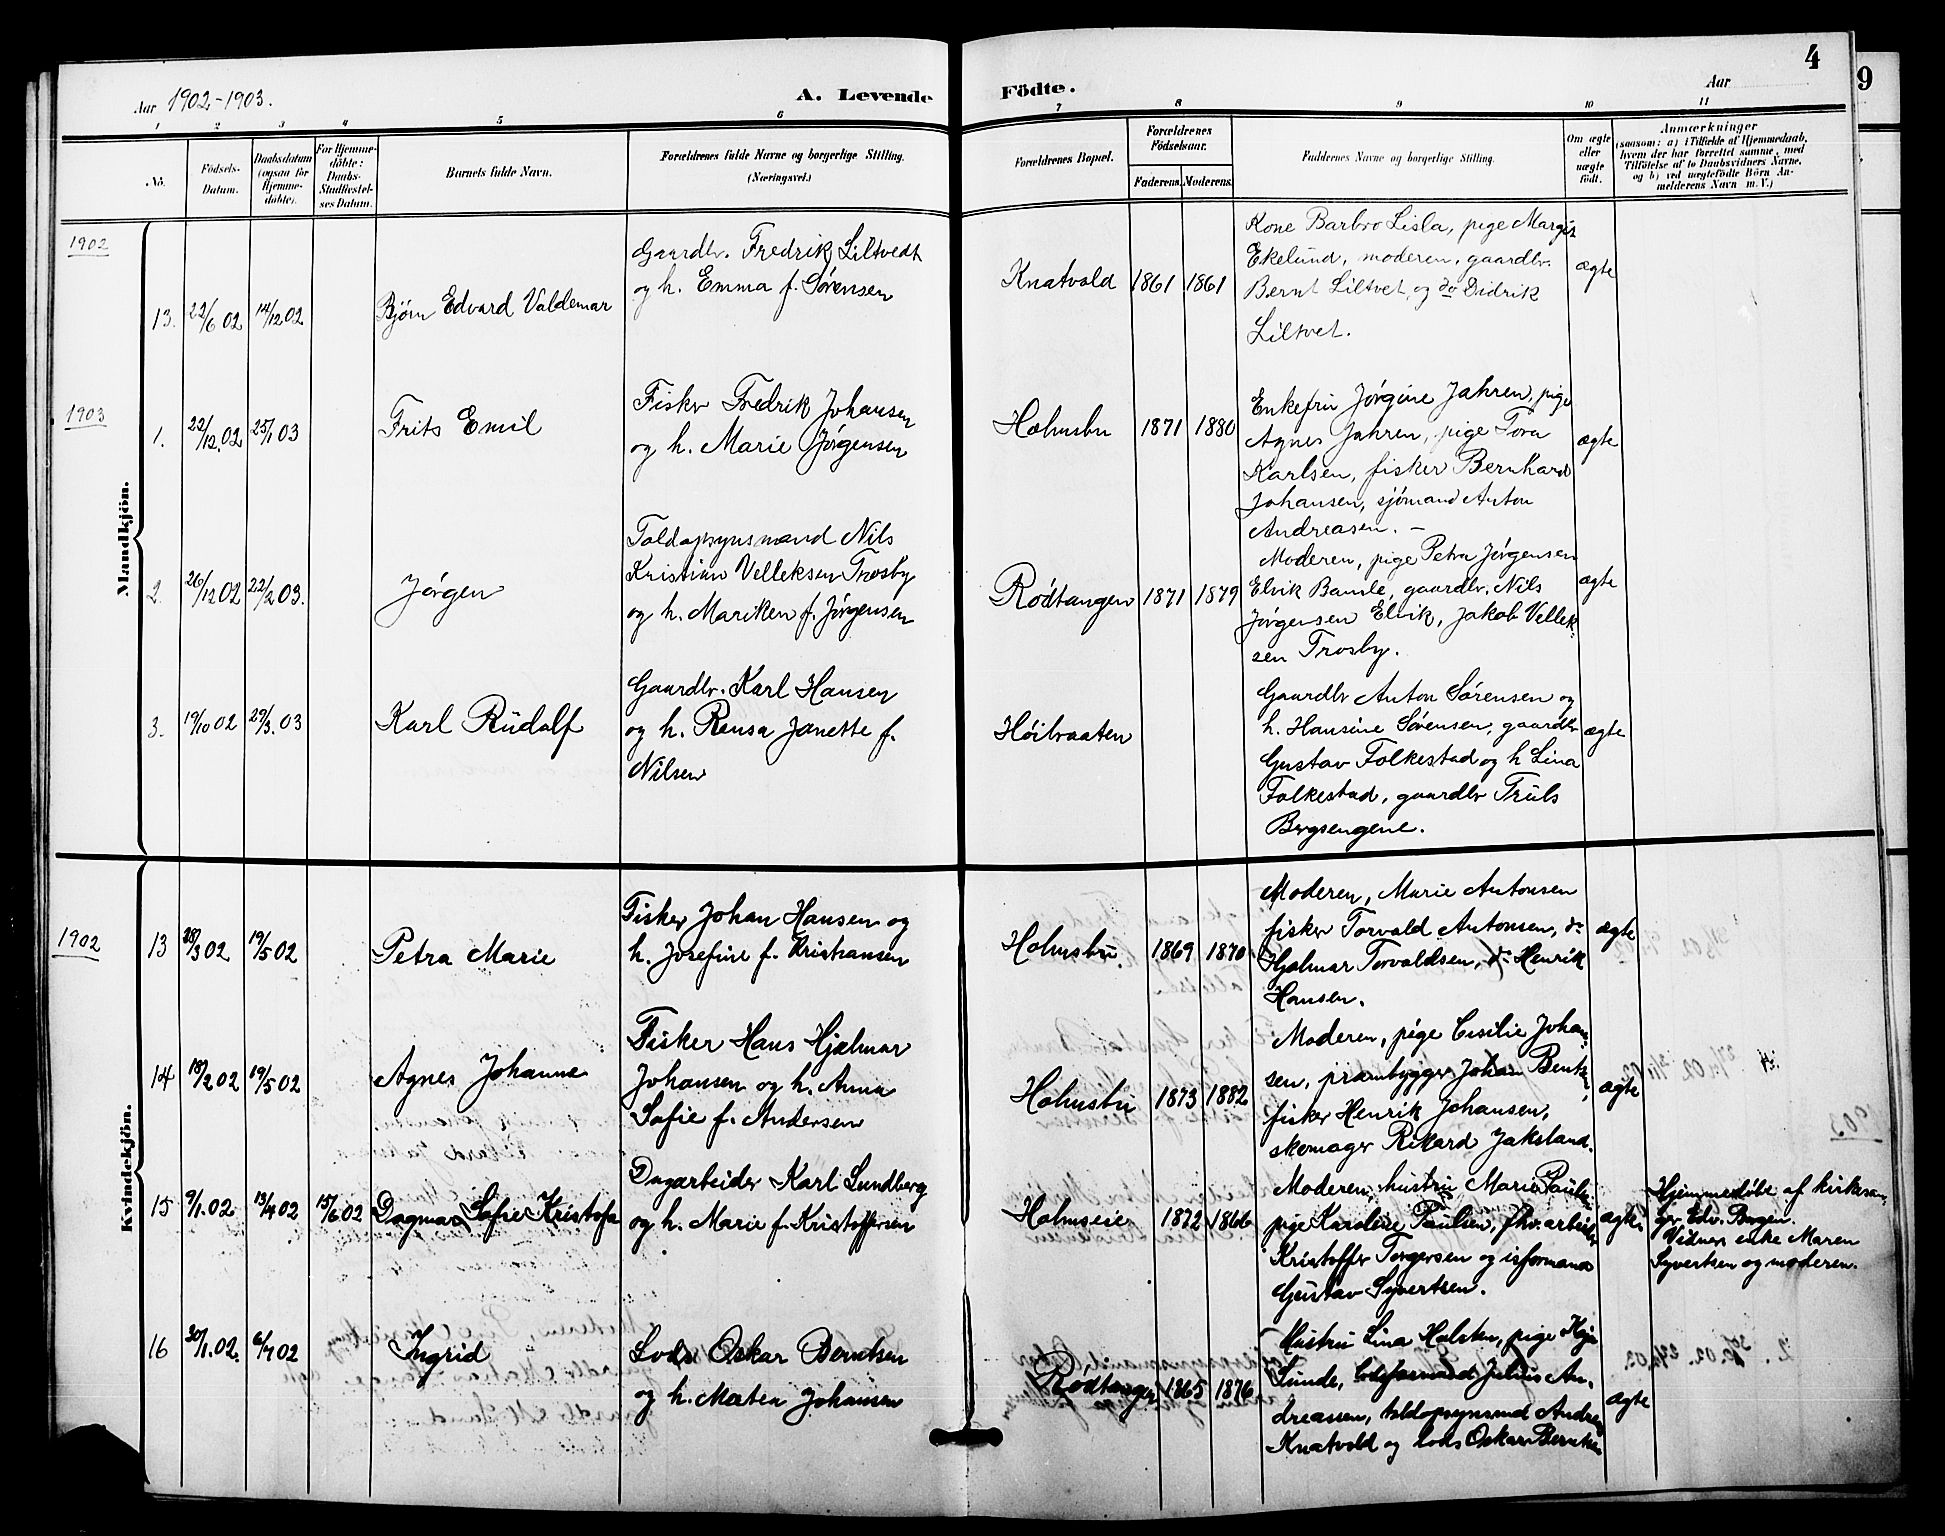 4
9
Aar 1902-1903.
A. Levende Födte.
Aar
1 2 3 4 5 6 7 8 9 10 11
No.
Födsels-
Datum.
Daabsdatum
(ogsaa for
Hjemme-
döbte).
For Hjemme-
döbte:
Daabs-
Stadfæstel-
ses Datum.
Barnets fulde Navn.
Forældrenes fulde Navne og borgerlige Stilling.
(Næringsvei.)
Forældrenes Bopæl.
Forældrenes
Födselsaar.
Faderens. Moderens.
Faddernes Navne og borgerlige Stilling.
Om ægte
eller
uægte
födt.
Anmærkninger
(saasom: a) i Tilfælde af Hjemmedaab,
hvem der har forrettet samme, med
Tilföielse af to Daabsvidners Navne,
og b) ved uægtefödte Börn An-
melderens Navn m. V.)
Mandkjön.
1902
13. 22/6 02 14/12 02 Bjørn Edvard Valdemar
Gaardbr. Fredrik Liltvedt
og h. Emma f. Sørensen
Knatvold 1861 1861
Kone Barbro Lisla, pige Margit
Ekelund, moderen, gaardbr.
Bernt Liltvet, og do Didrik
Liltvet.
ægte
1903
1. 22/12 02 25/1 03 Frits Emil
Fisker Fredrik Johansen
og h. Marie Jørgensen
Holmsbu 1871 1880
Enkefru Jørgine Jahren, pige
Agnes Jahren, pige Tora
Karlsen, fisker Bernhard
Johansen, sjømand Anton
Andreasen. –
ægte
2. 26/12 02 22/2 03. Jørgen
Toldopsynsmand Nils
Kristian Velleksen Trosby
og h. Mariken f. Jørgensen
Rødtangen 1871 1879
Moderen, pige Petra Jørgensen
Elvik Bamle, gaardbr. Nils
Jørgensen Elvik, Jakob Vellek-
sen Trosby.
ægte
3. 19/10 02 29/3. 03 Karl Rudolf
Gaardbr. Karl Hansen
og h. Rensa Janette f.
Nilsen
Høibraaten
Gaardbr Anton Sørensen og
h. Hansine Sørensen, gaardbr
Gustav Folkestad og h Lina
Folkestad, gaardbr Truls
Bergsengene.
ægte
Kvindekjön.
1902
13 28/3 02 19/5 02 Petra Marie
Fisker Johan Hansen og
h. Josefine f. Kristiansen
Holmsbu. 1869 1870
Moderen, Marie Antonsen
fisker Torvald Antonsen, do
Hjalmar Torvaldsen, do Henrik
Hansen.
ægte
14 18/2 02 19/5 02 Agnes Johanne
Fisker Hans Hjalmar
Johansen og h. Anna
Sofie f. Andersen
Holmsbu 1873 1882
Moderen, pige Cesilie Johan-
sen, prambygger Johan
fisker Henrik Johansen,
skomager Rikard Jaksland.
ægte
15 9/1. 02 13/4 02 15/6 02 Dagmar Sofie Kristofa
Dagarbeider Karl Lundberg
og h. Marie f. Kristoffersen
Holmseie 1872 1866
Moderen, hustru Marie
pige Karoline Paulsen, fhv. arbeider
Kristoffer Torgersen og isformand
Gustav Syvertsen.
ægte
Hjemmedøbt af kirkesan-
ger Edv. Bergen.
Vidner enke Maren
Syvertsen og moderen.
16 30/1. 02. 6/7 02 Ingrid
Lods Oskar Berntsen
og h. Martea Johansen
Rødtangen 1865 1876
Hustru Lina Holsten, pige
Lunde, lodsformand Julius An-
dreassen, toldopsynsmd Andreas
Knatvold og lods Oskar Berntsen
ægte